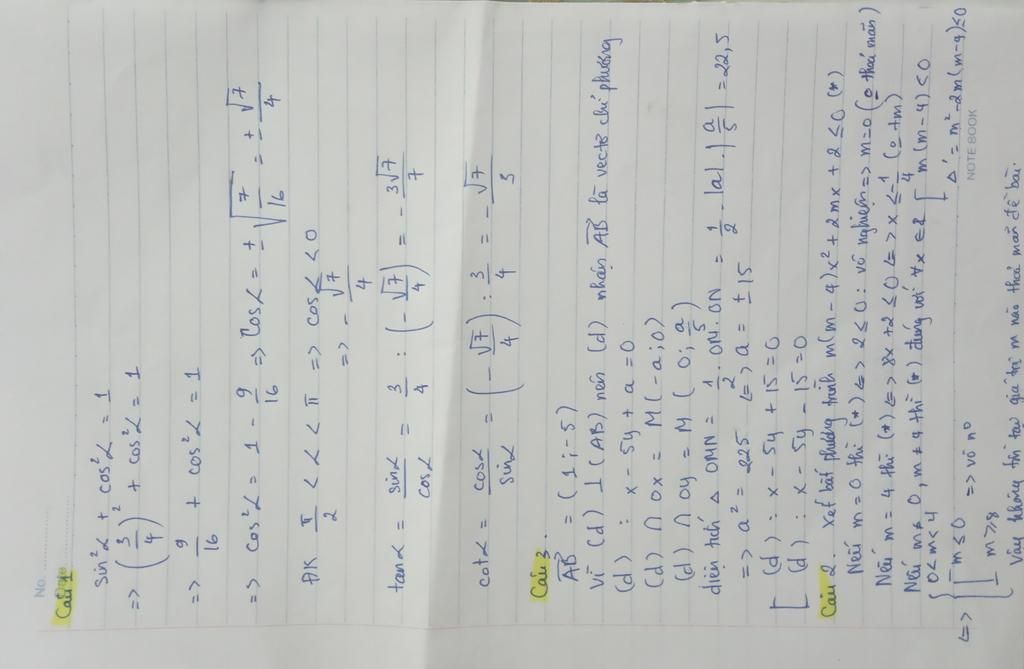 No.
Câu 1
sin²α + cos²α = 1
=> (3/4)² + cos²α = 1
=> 9/16 + cos²α = 1
=> cos²α = 1 - 9/16 => cosα = ±√(7/16) = ±√7/4
ĐK π/2 < α < π => cosα < 0
=> -√7/4
tanα = sinα/cosα = 3/4 : (-√7/4) = -3√7/7
cotα = cosα/sinα = (-√7/4) : 3/4 = -√7/3
Câu 3.
AB = (1;-5)
Vì (d) ⊥ (AB) nên (d) nhận AB là vectơ chỉ phương
(d) : x - 5y + a = 0
(d) ∩ Ox = M(-a;0)
(d) ∩ Oy = M(0; a/5)
diện tích Δ OMN = 1/2 . OM. ON = 1/2 . |a| . |a/5| = 22,5
=> a² = 225 <=> a = ±15
[ (d) : x - 5y + 15 = 0
(d) : x - 5y - 15 = 0
Câu 2. Xét bất phương trình m(m-4)x² + 2mx + 2 ≤ 0 (*)
Nếu m = 0 thì (*) <=> 2 ≤ 0 : vô nghiệm => m = 0 (o thoả mãn)
Nếu m = 4 thì (*) <=> 8x + 2 ≤ 0 <=> x ≤ -1/4 (o tm)
Nếu m ≠ 0, m ≠ 4 thì (*) đúng với ∀x ∈ R [ m(m-4) < 0
Δ' = m² - 2m(m-4) ≤ 0
<=> { 0 < m < 4
[ m ≤ 0
m ≥ 8
=> vô n°
Vậy không tồn tại giá trị m nào thoả mãn đề bài.
NOTE BOOK